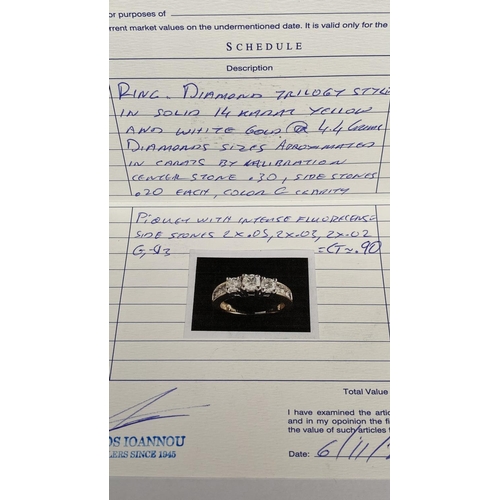 or purposes of
rrent market values on the undermentioned date. It is valid only for the
SCHEDULE
Description
RING - DIAMOND TRILOGY STYLE
IN SOLID 14 KARAT YELLOW
AND WHITE GOLD @ 4.4 GRAMS
DIAMONDS SIZES APROXIMATED
IN CARATS BY KALIBRATION
CENTER STONE .30, SIDE STONES
.20 EACH, COLOR G CLARITY
PIQUET WITH INTENSE FLUORESENSE
SIDE STONES 2X.05, 2X.03, 2X.02
G, SI3 =CT~.90
Total Value
I have examined the artic
and in my opoinion the fi
the value of such articles t
OS IOANNOU
LERS SINCE 1945
Date: 6/11/